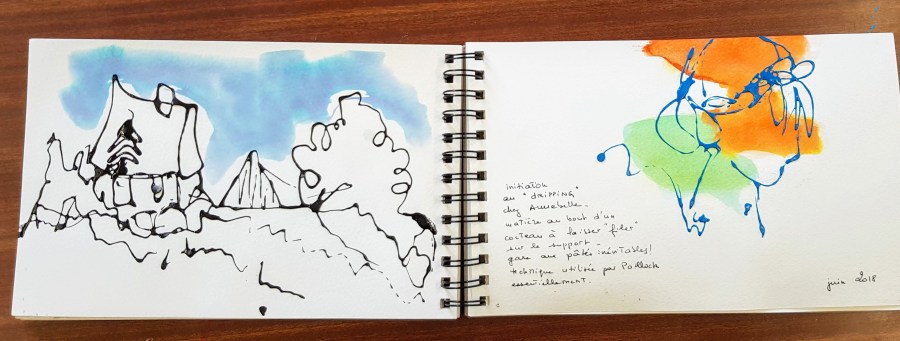 initiation
au "DRIPPING"
chez Annabelle.
matière au bout d'un
couteau à laisser "filer"
sur le support -
gare aux pâtés inévitables!
technique utilisée par Pollock
essentiellement.
juin 2018